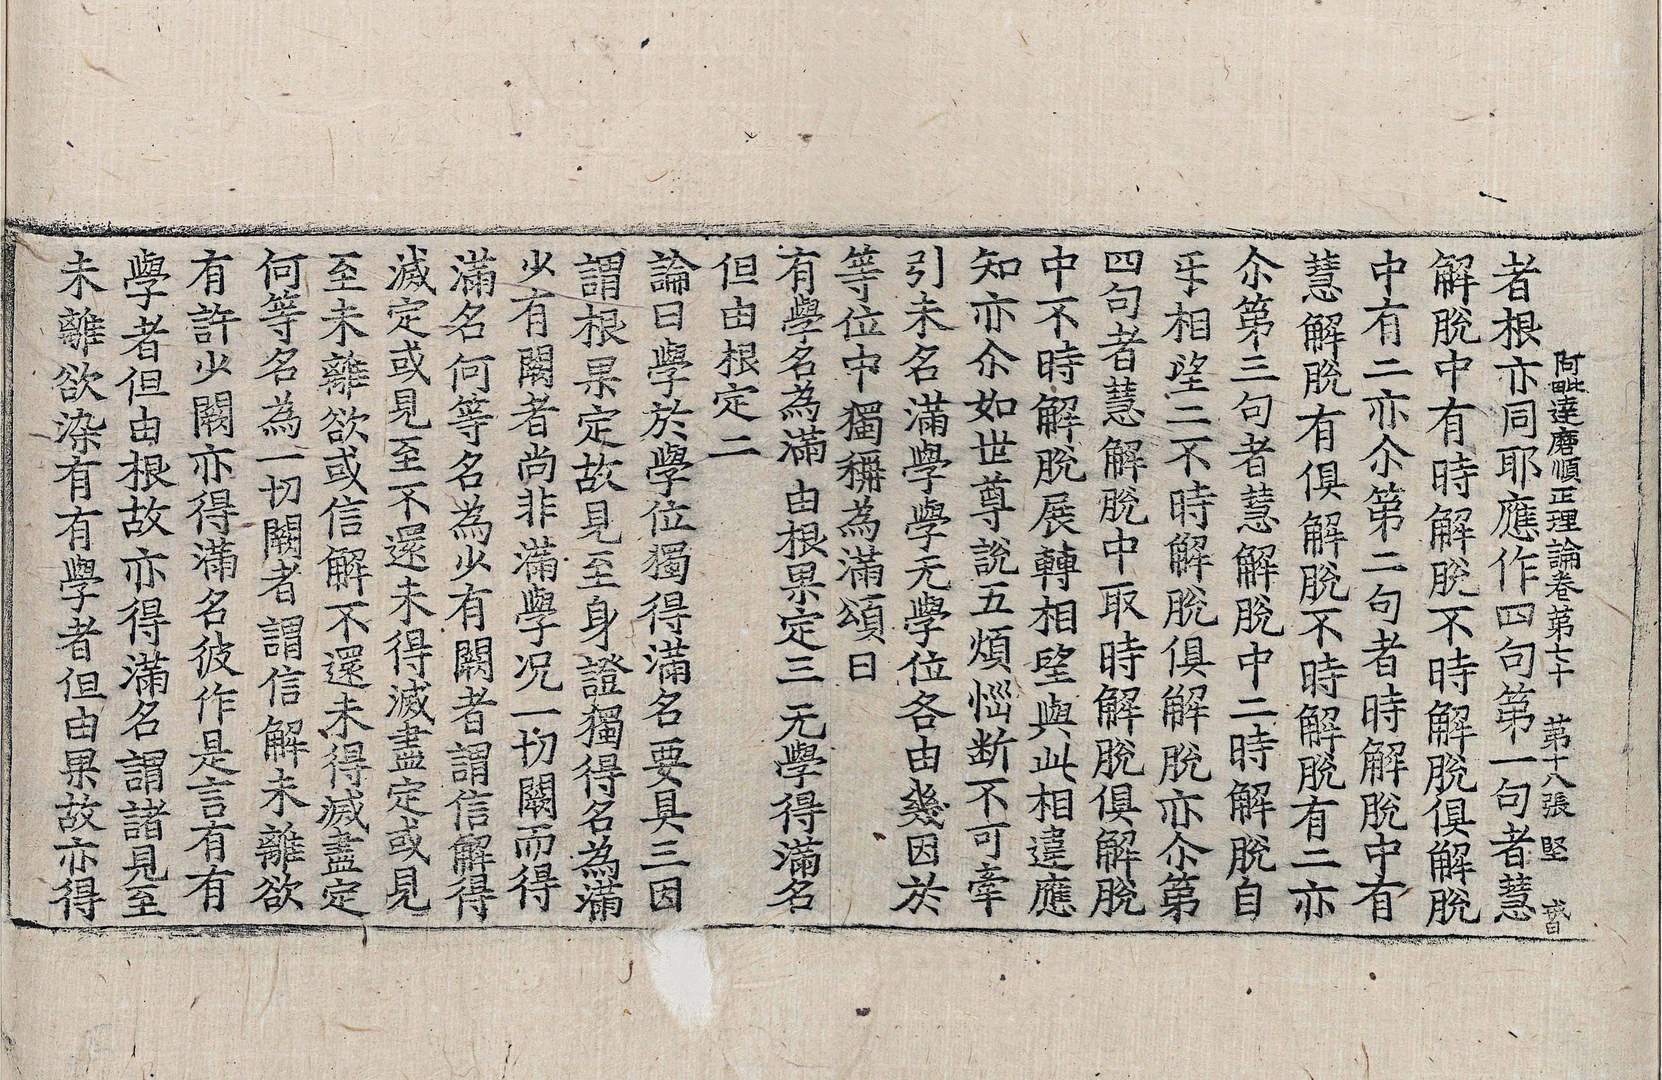 阿毗達磨順正理論卷第七十　第十八張　堅
者根亦同耶應作四句第一句者慧
解脫中有時解脫不時解脫俱解脫
中有二亦尒第二句者時解脫中有
慧解脫有俱解脫不時解脫有二亦
尒第三句者慧解脫中二時解脫自
㸦相望二不時解脫俱解脫亦尒第
四句者慧解脫中取時解脫俱解脫
中不時解脫展轉相望與此相違應
知亦尒如世尊說五煩惱断不可牽
引未名滿學學无學位各由幾因於
等位中獨稱為滿頌曰
有學名為滿　由根果定三　无學得滿名
但由根定二
論曰學於學位獨得滿名要具三因
謂根果定故見至身證獨得名為滿
少有闕者尚非滿學况一切闕而得
滿名何等名為少有闕者謂信解得
滅定或見至不還未得滅盡定或見
至未離欲或信解不還未得滅盡定
何等名為一切闕者謂信解未離欲
有許少闕亦得滿名彼作是言有有
學者但由根故亦得滿名謂諸見至
未離欲染有有學者但由果故亦得